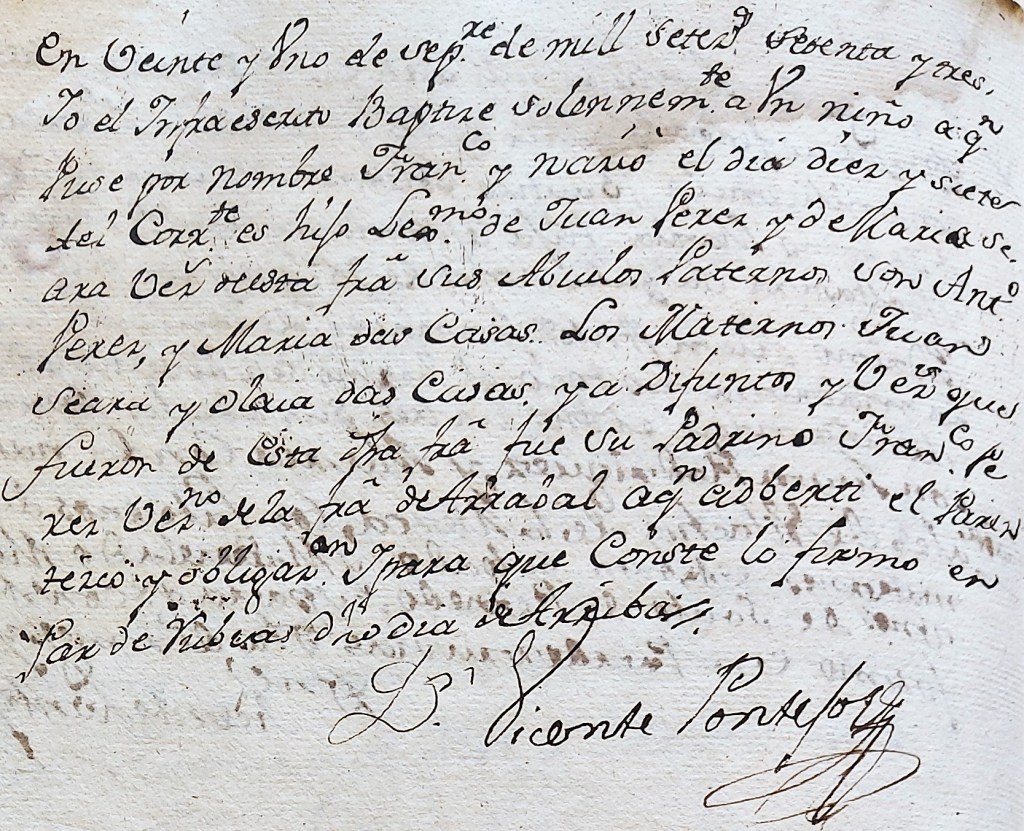 En Veinte y Uno de sepre. de mill seted setenta y tres,
Yo el Infraescrito Baptize solennemte a Un niño a qn
Puse por nombre Franco. y naziò el dia diez y siete
del Corrte. es hijo Lexmo. de Juan Perez y de Maria se-
ara Vens desta fra sus Abuelos Paternos son Anto
Perez, y Maria das Casas. Los Maternos Juan
Seara y olaia das Casas, ya Difuntos y Vens que
fueron de esta fra fue su Padrino Franco. Pe
rez Veno. de la fra de Arrabal aqn adberti el Paren
tesco y obligazon. Ypara que Conste lo firmo en
Paz de Rubias dho dia de Arriba.
Dn. Vicente Pontejos